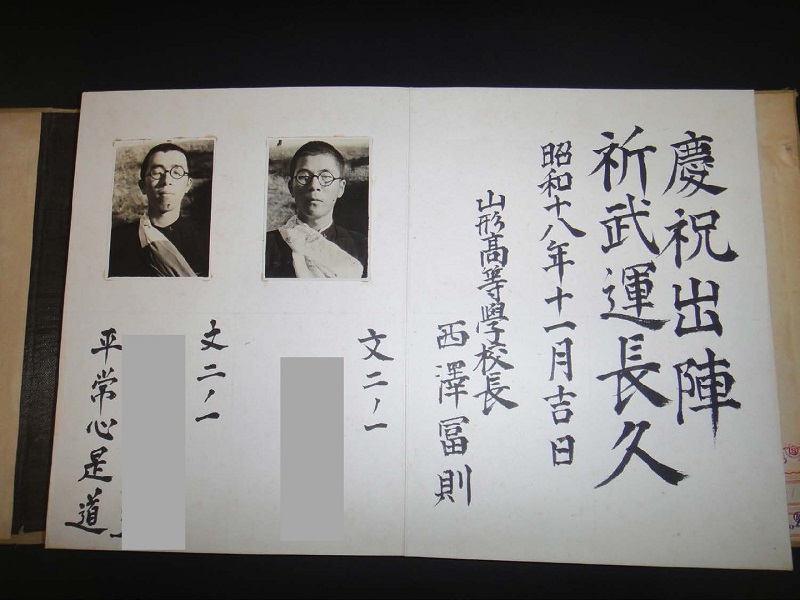 慶祝出陣
祈武運長久
昭和十八年十一月吉日
山形高等學校長
西澤冨則
文二ノ一
文二ノ一
平常心是道